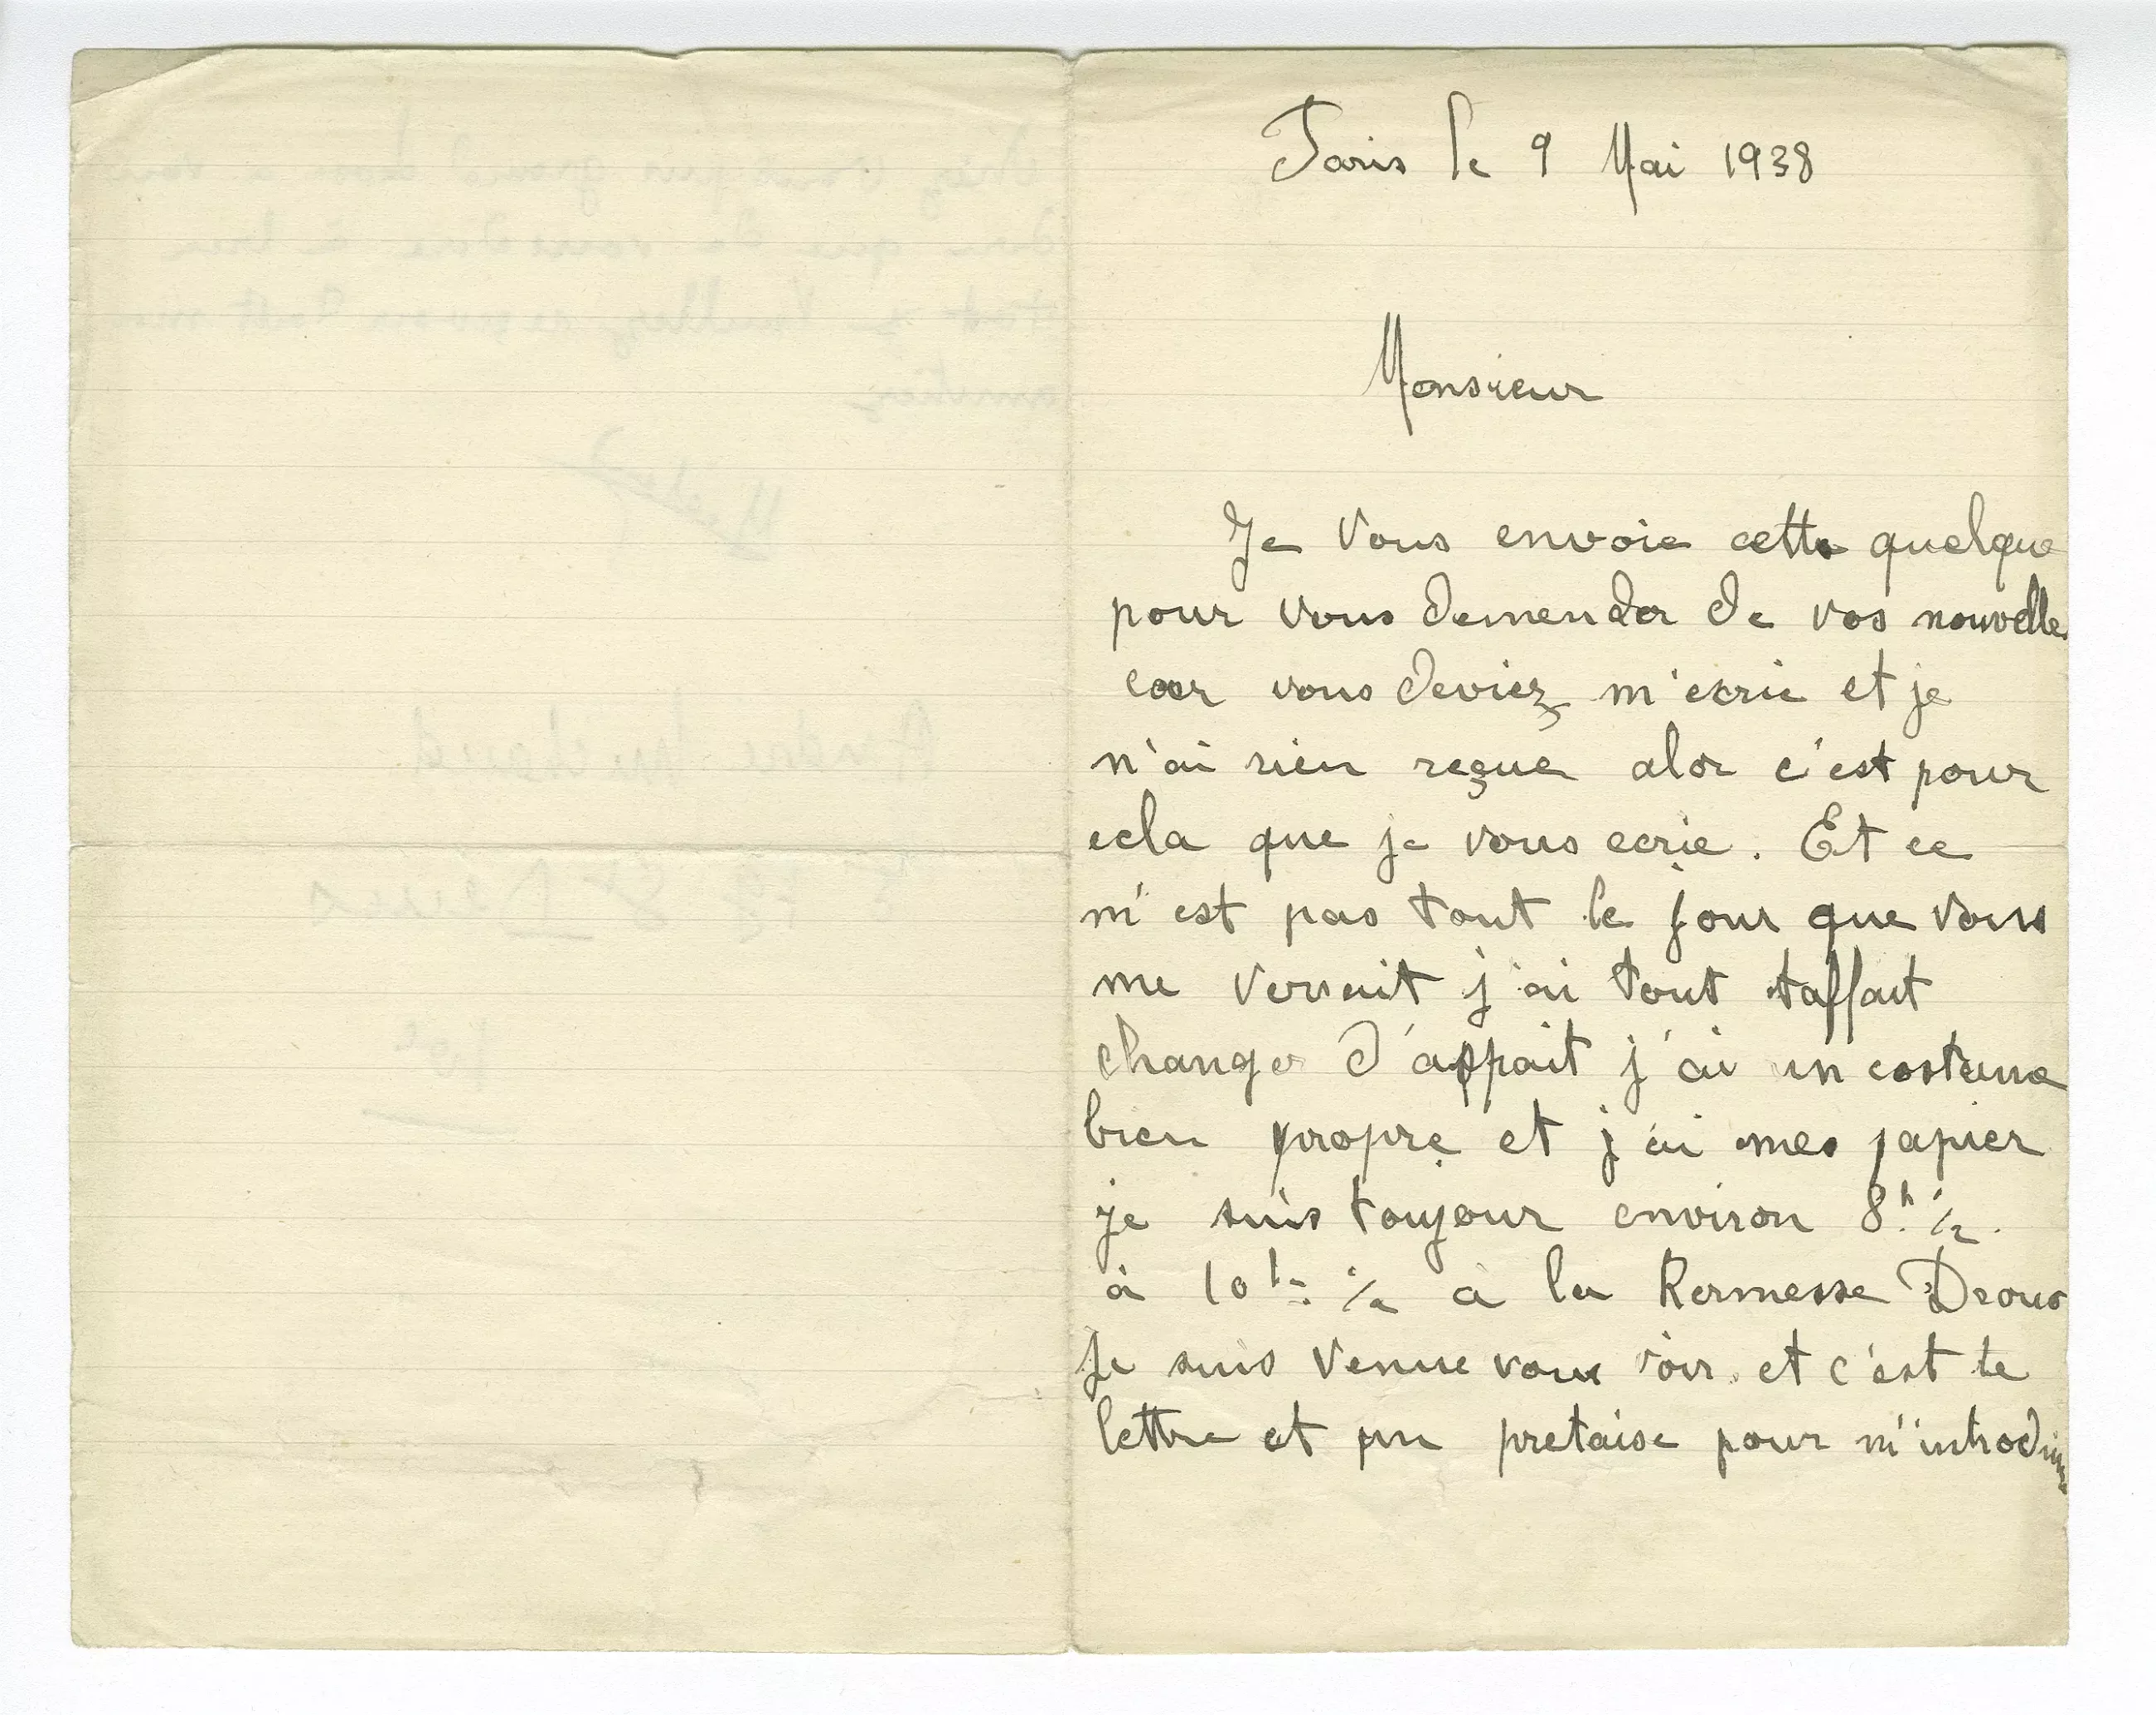 Paris le 9 Mai 1938
Monsieur
Je vous envoie cette quelque
pour vous demender de vos nouvelle
car vous deviez m'ecrie et je
n'ai rien reçue alor c'est pour
cela que je vous ecrie. Et ce
n'est pas tout le jour que vous
me versait j'ai tout taffait
changer d'appait j'ai un costume
bien propre et j'ai mes papier
je suis toujour environ 8h 1/2
à 10h 1/2 a la Kermesse Drouo
Je suis venue vous voir et c'est te
lettre et un pretaise pour m'introduire